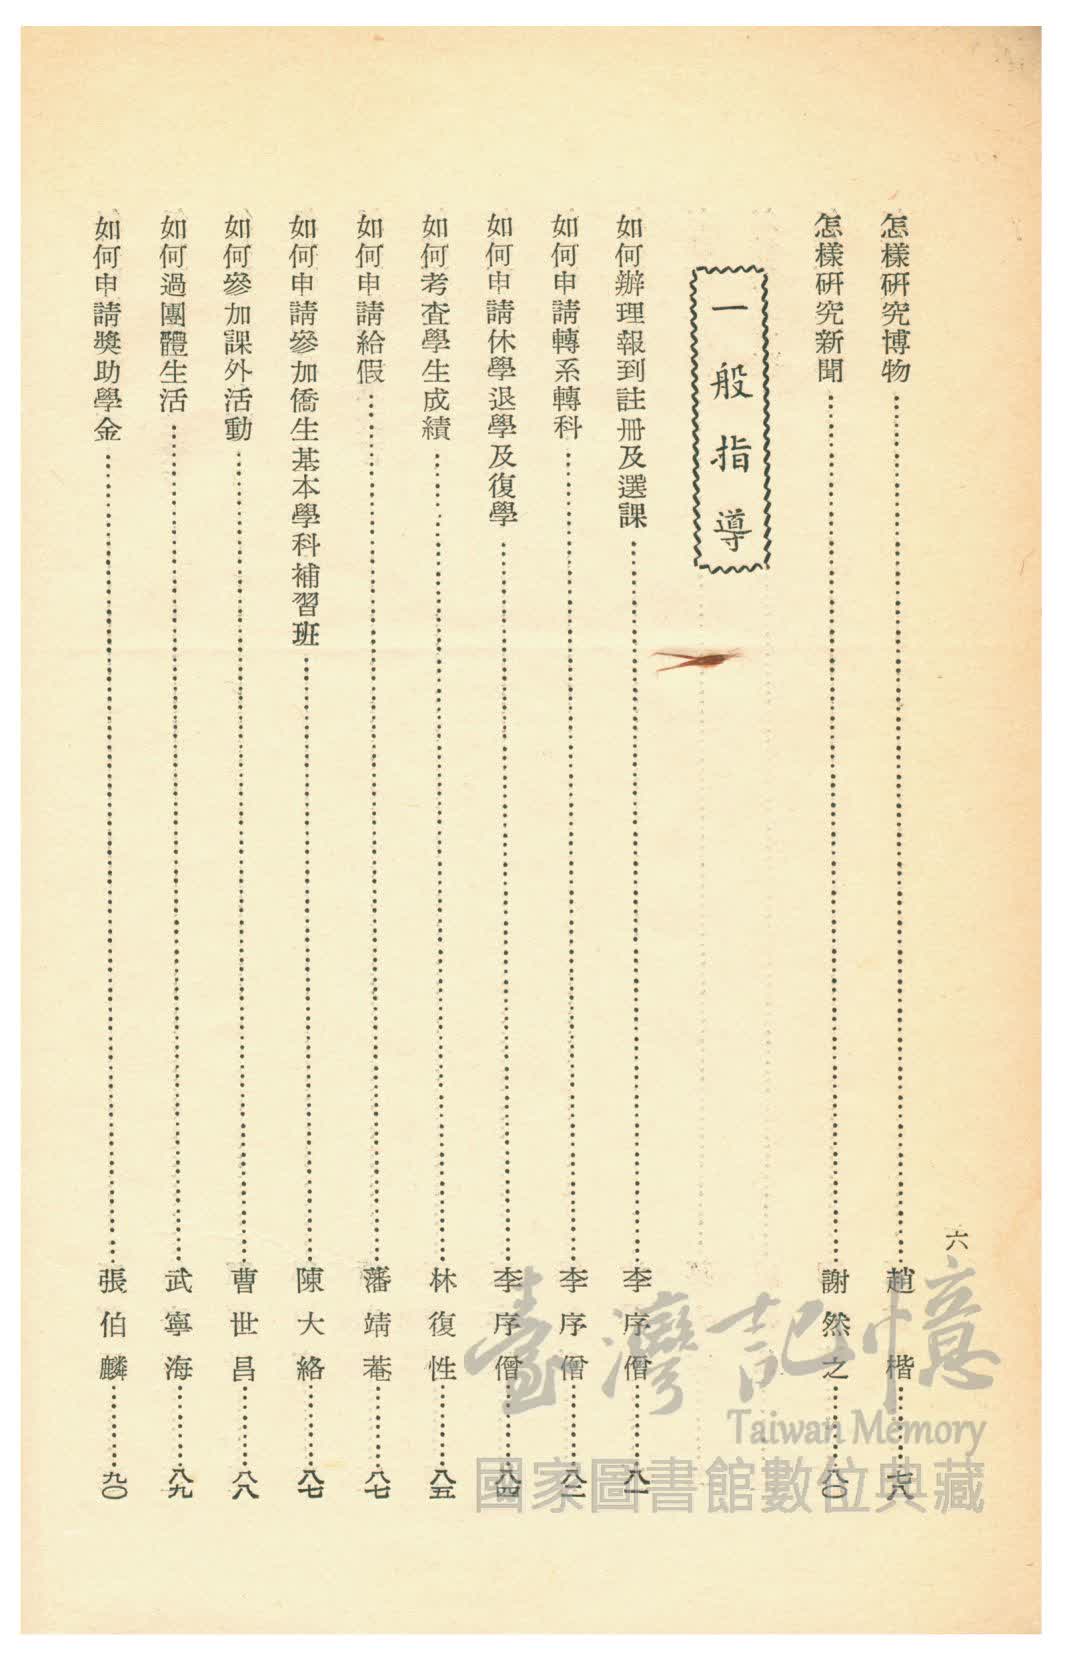 六
怎樣研究博物…………趙楷…………七八
怎樣研究新聞…………謝然之…………八〇
一般指導
如何辦理報到註冊及選課…………李序僧…………八一
如何申請轉系轉科…………李序僧…………八三
如何申請休學退學及復學…………李序僧…………八四
如何考查學生成績…………林復性…………八五
如何申請給假…………藩靖菴…………八七
如何申請參加僑生基本學科補習班…………陳大絡…………八七
如何參加課外活動…………曹世昌…………八八
如何過團體生活…………武寧海…………八九
如何申請獎助學金…………張伯麟…………九〇
臺灣記憶
Taiwan Memory
國家圖書館數位典藏